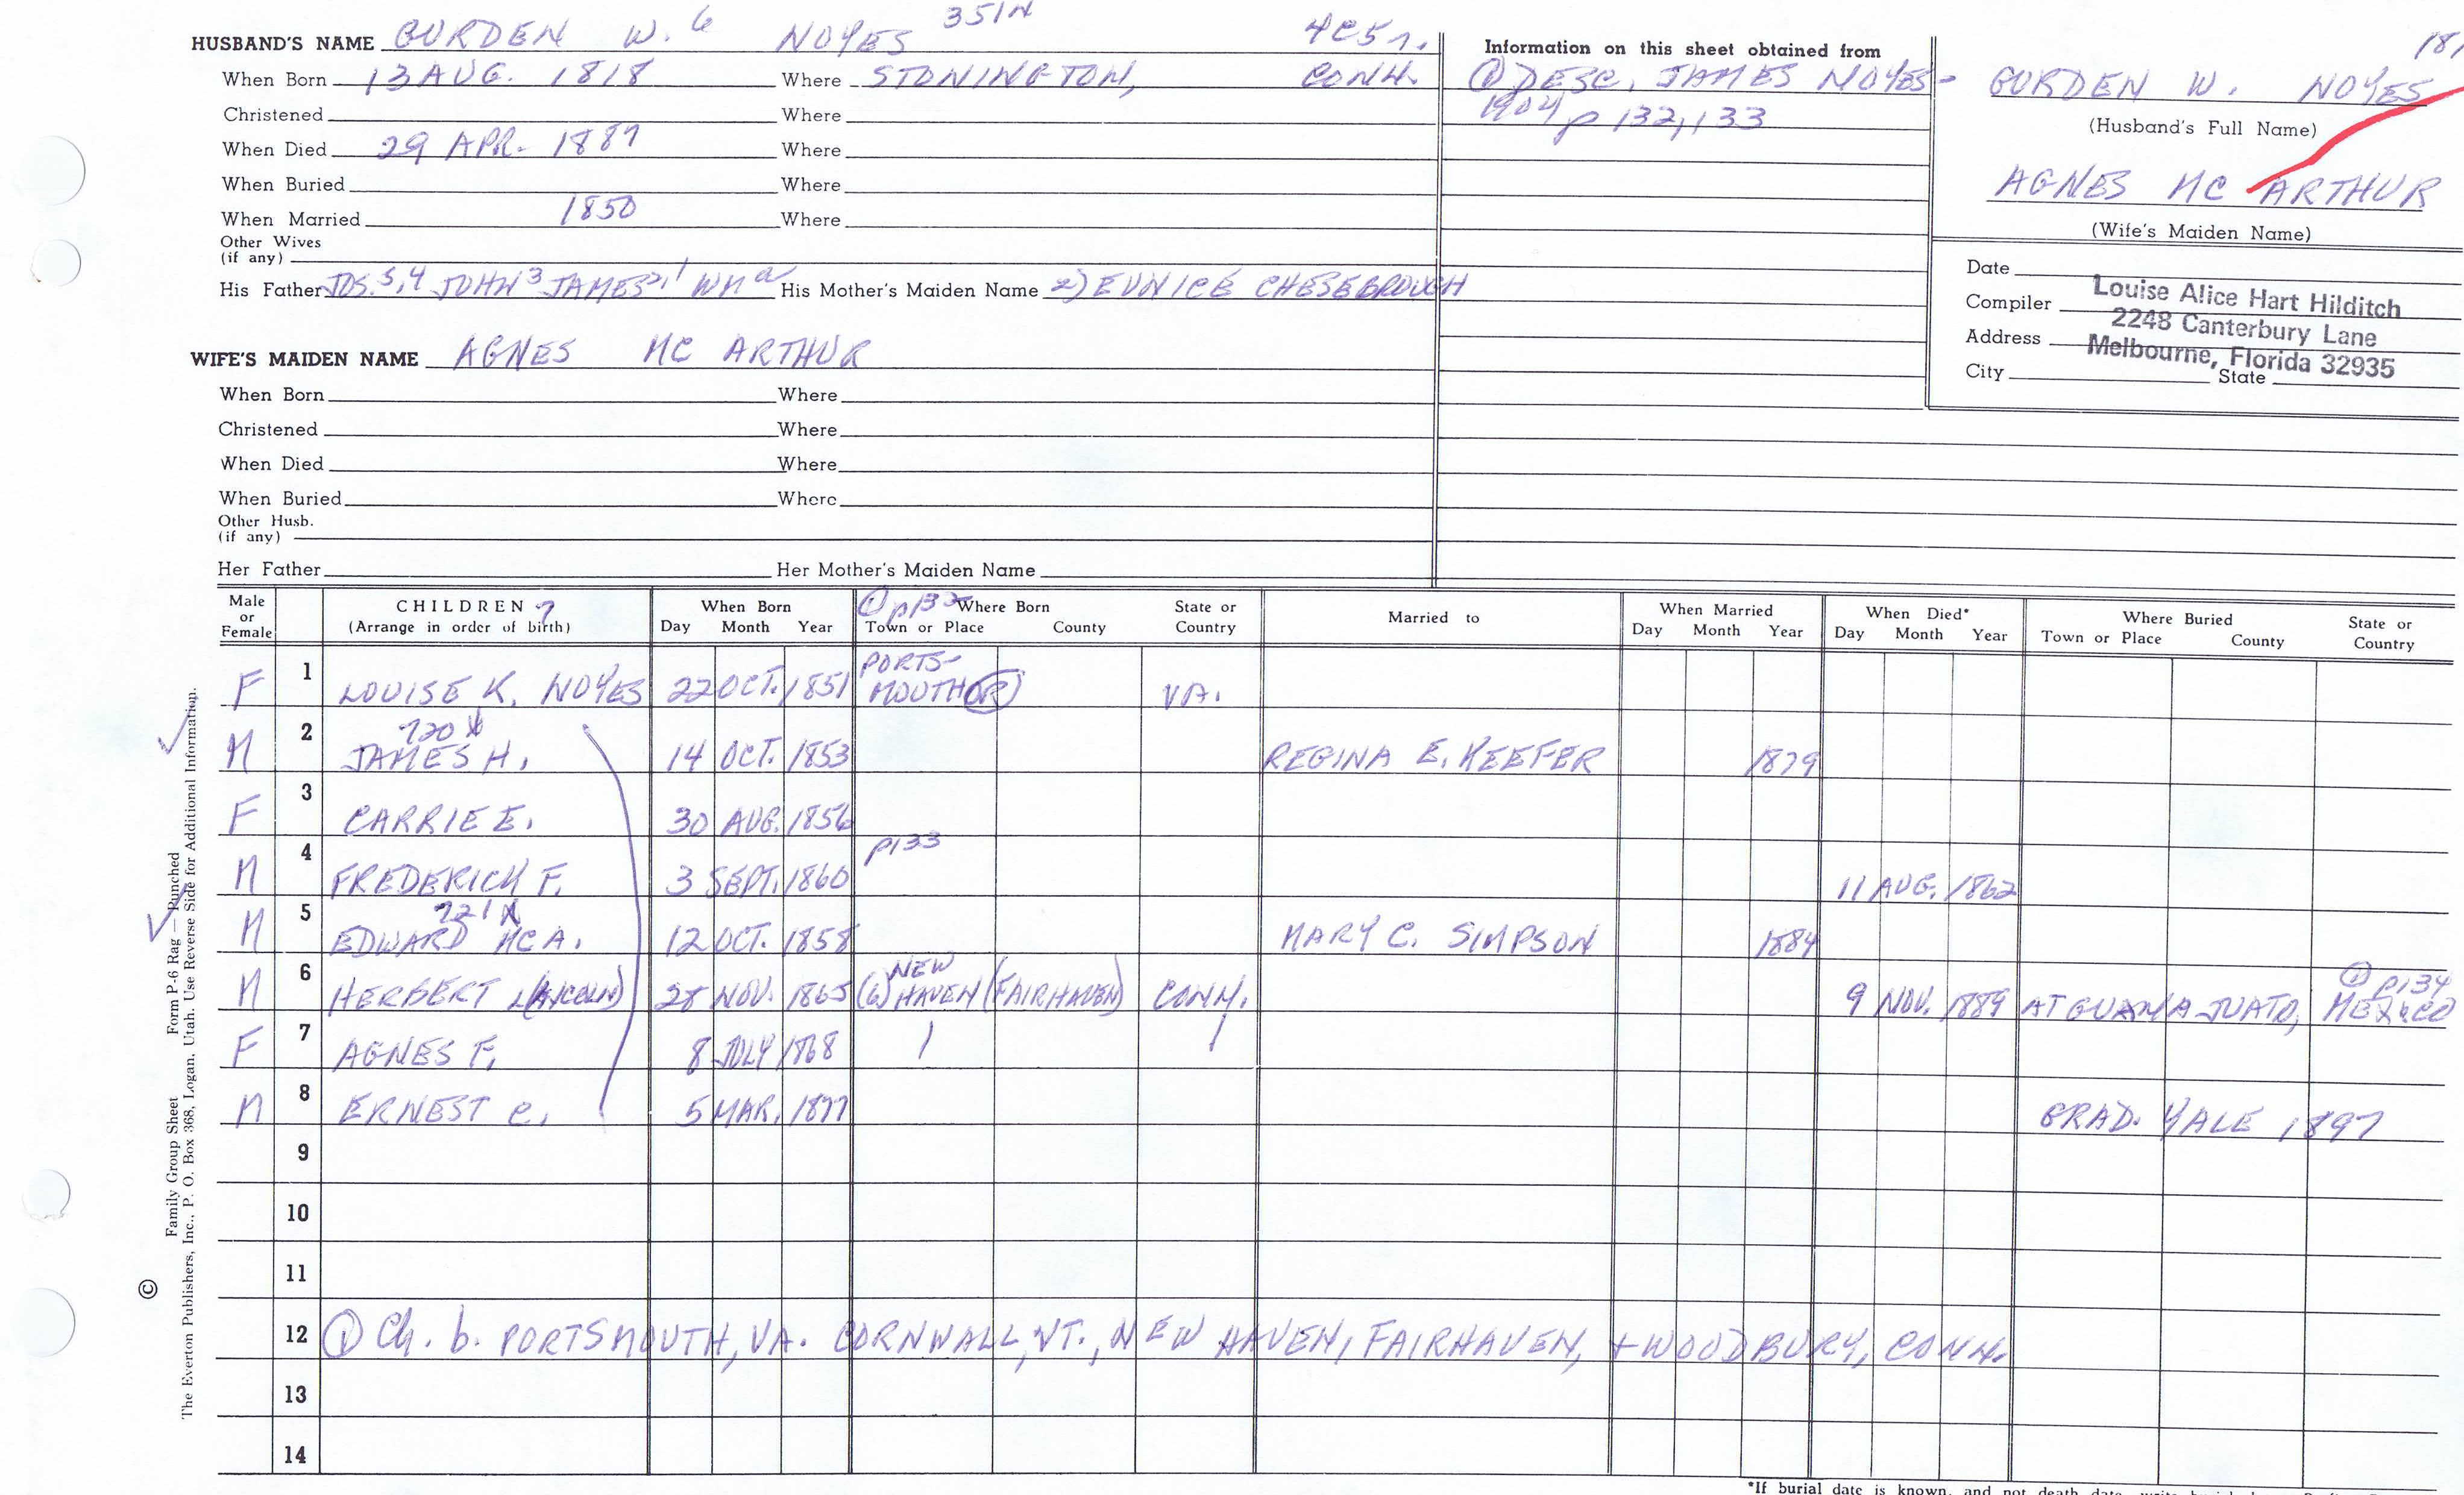 351N
HUSBAND'S NAME GURDEN W. 6 NOYES 4C5r.
When Born 13 AUG. 1818 Where STONINGTON, CONN.
Christened Where
When Died 29 APR. 1887 Where
When Buried Where
When Married 1850 Where
Other Wives
(if any)
His Father JOS. 5,4 JOHN 3 JAMES 2,1 WM a His Mother's Maiden Name 2) EUNICE CHESEBROUGH
WIFE'S MAIDEN NAME AGNES MC ARTHUR
When Born Where
Christened Where
When Died Where
When Buried Where
Other Husb.
(if any)
Her Father Her Mother's Maiden Name
Information on this sheet obtained from
① DESC. JAMES NOYES-
1904 p 132,133
181
GURDEN W. NOYES
(Husband's Full Name)
AGNES MC ARTHUR
(Wife's Maiden Name)
Date
Compiler Louise Alice Hart Hilditch
Address 2248 Canterbury Lane
Melbourne, Florida 32935
City State
Male or Female CHILDREN 7 (Arrange in order of birth) When Born Day Month Year ① p132 Where Born Town or Place County State or Country Married to When Married Day Month Year When Died* Day Month Year Where Buried Town or Place County State or Country
F 1 LOUISE K. NOYES 22 OCT. 1851 PORTS-MOUTH (OR) VA.
720
M 2 JAMES H. 14 OCT. 1853 REGINA E. KEEFER 1879
F 3 CARRIE E. 30 AUG. 1856
p133
M 4 FREDERICK F. 3 SEPT. 1860 11 AUG. 1862
721
M 5 EDWARD MC A. 12 OCT. 1858 MARY C. SIMPSON 1884
M 6 HERBERT L(INCOLN) 28 NOV. 1865 (6) NEW HAVEN (FAIRHAVEN) CONN. 9 NOV. 1889 AT GUANAJUATO, MEXICO ① p134
F 7 AGNES F. 8 JULY 1868
M 8 ERNEST C. 5 MAR. 1877 GRAD. YALE 1897
9
10
11
12 ① Ch. b. PORTSMOUTH, VA. CORNWALL, VT., NEW HAVEN, FAIRHAVEN, + WOODBURY, CONN.
13
14
*If burial date is known, and not death date,
© Family Group Sheet Form P-6 Rag — Punched
The Everton Publishers, Inc., P. O. Box 368, Logan, Utah. Use Reverse Side for Additional Information.